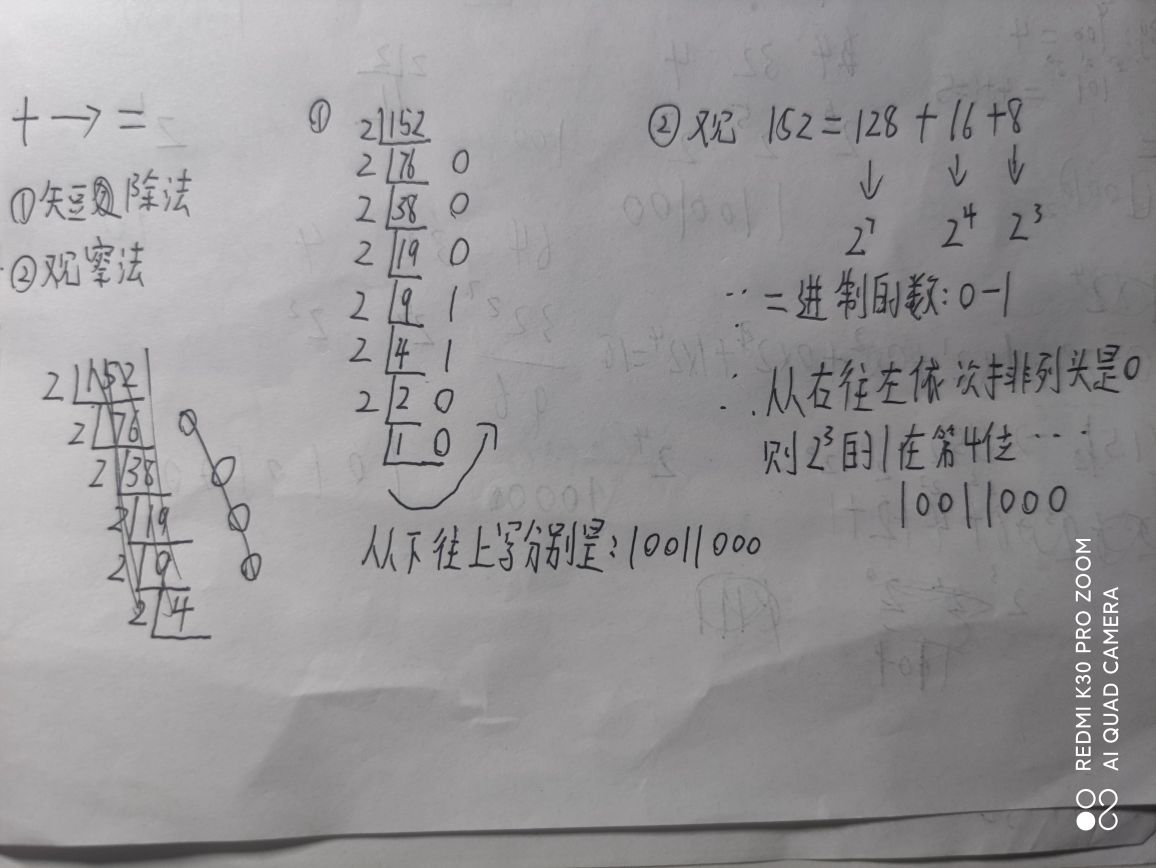 十→二
①短除法
②观察法
2 152
2 76
2 38
2 19
2 9
2 4
①
2 152
2 76 0
2 38 0
2 19 0
2 9 1
2 4 1
2 2 0
1 0
从下往上写分别是:10011000
②观 152=128+16+8
↓ ↓ ↓
2⁷ 2⁴ 2³
∵二进制的数:0-1
∴从右往左依次排列头是0
则2³的1在第4位…
10011000
REDMI K30 PRO ZOOM
AI QUAD CAMERA